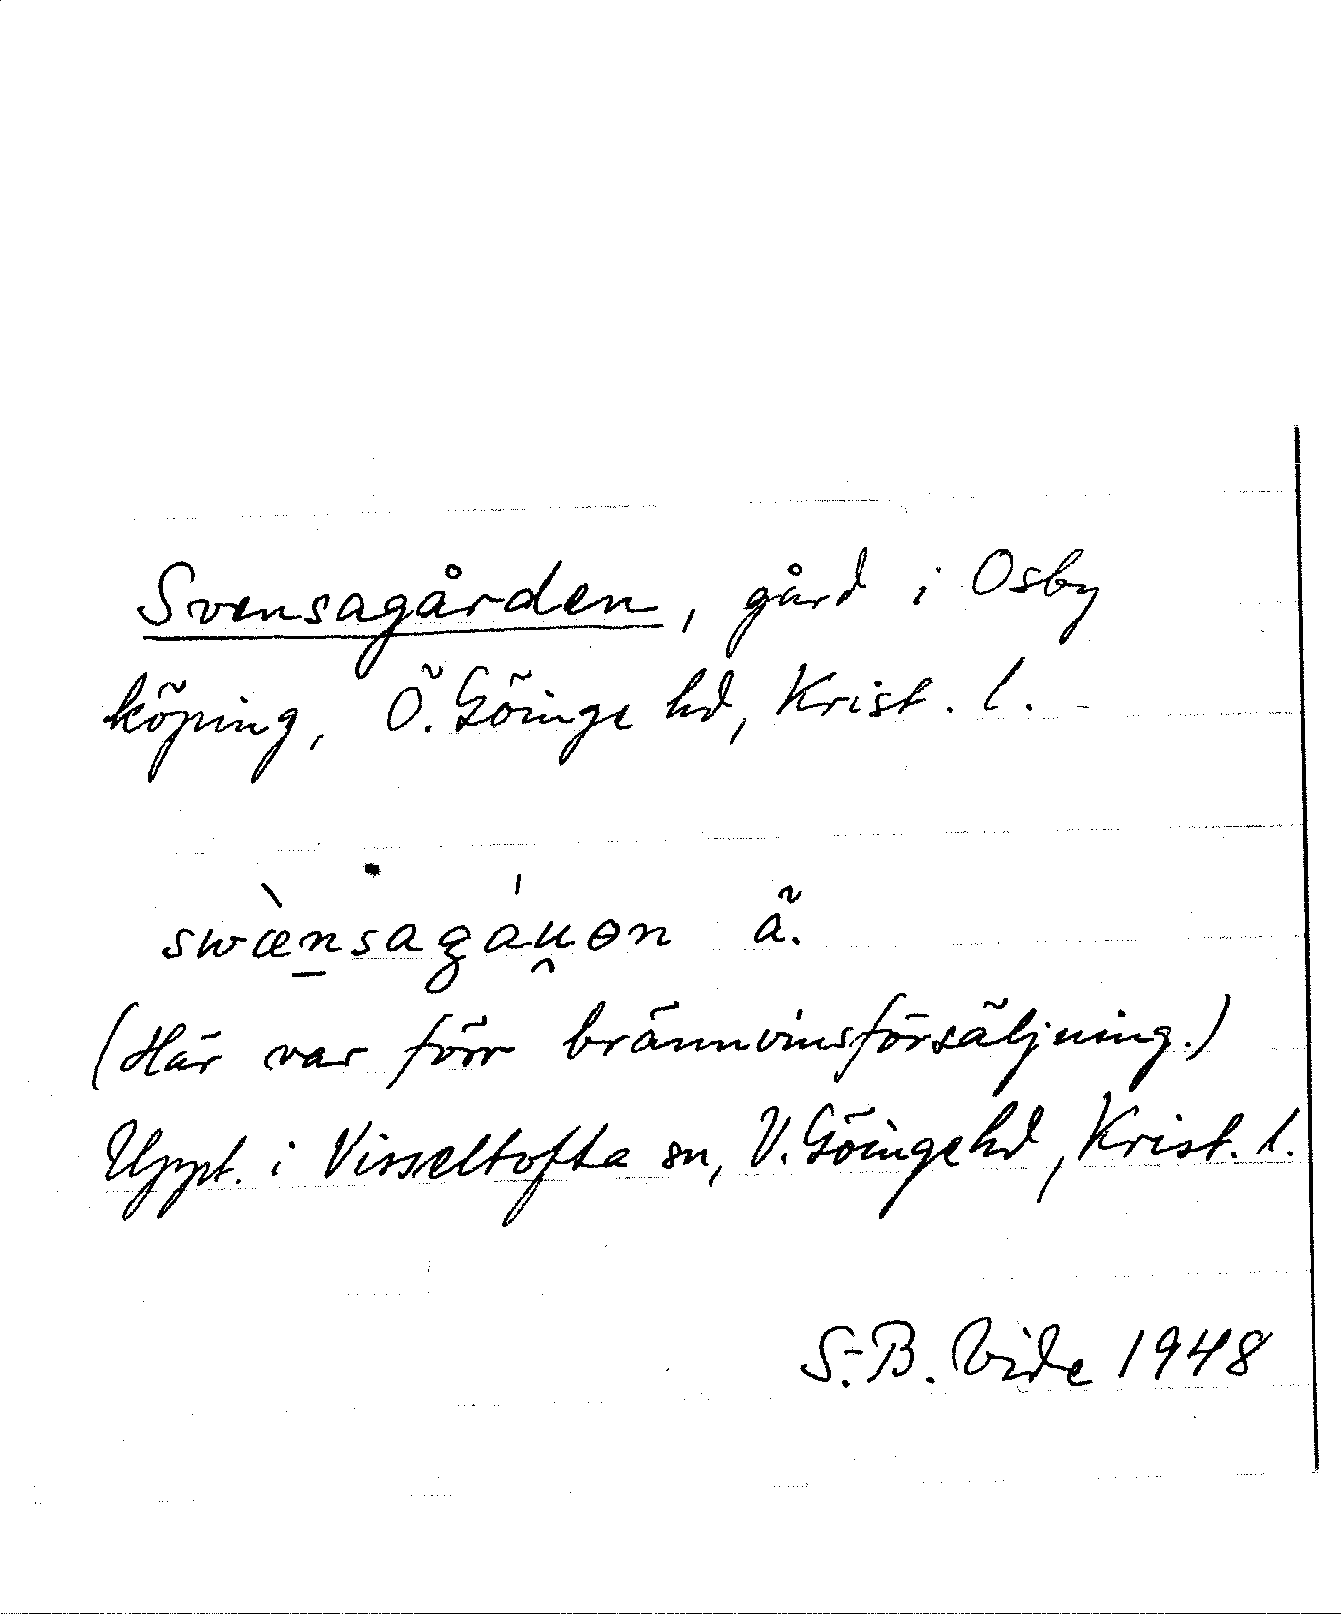 Svensagården, gård i Osby
köping, Ö. Göinge hd, Krist. l.
swæ̀n̠sagáu̯ɵn ä.
(Här var förr brännvinsförsäljning.)
Uppt. i Visseltofta sn, V. Göinge hd, Krist. l.
S.-B. Vide 1948